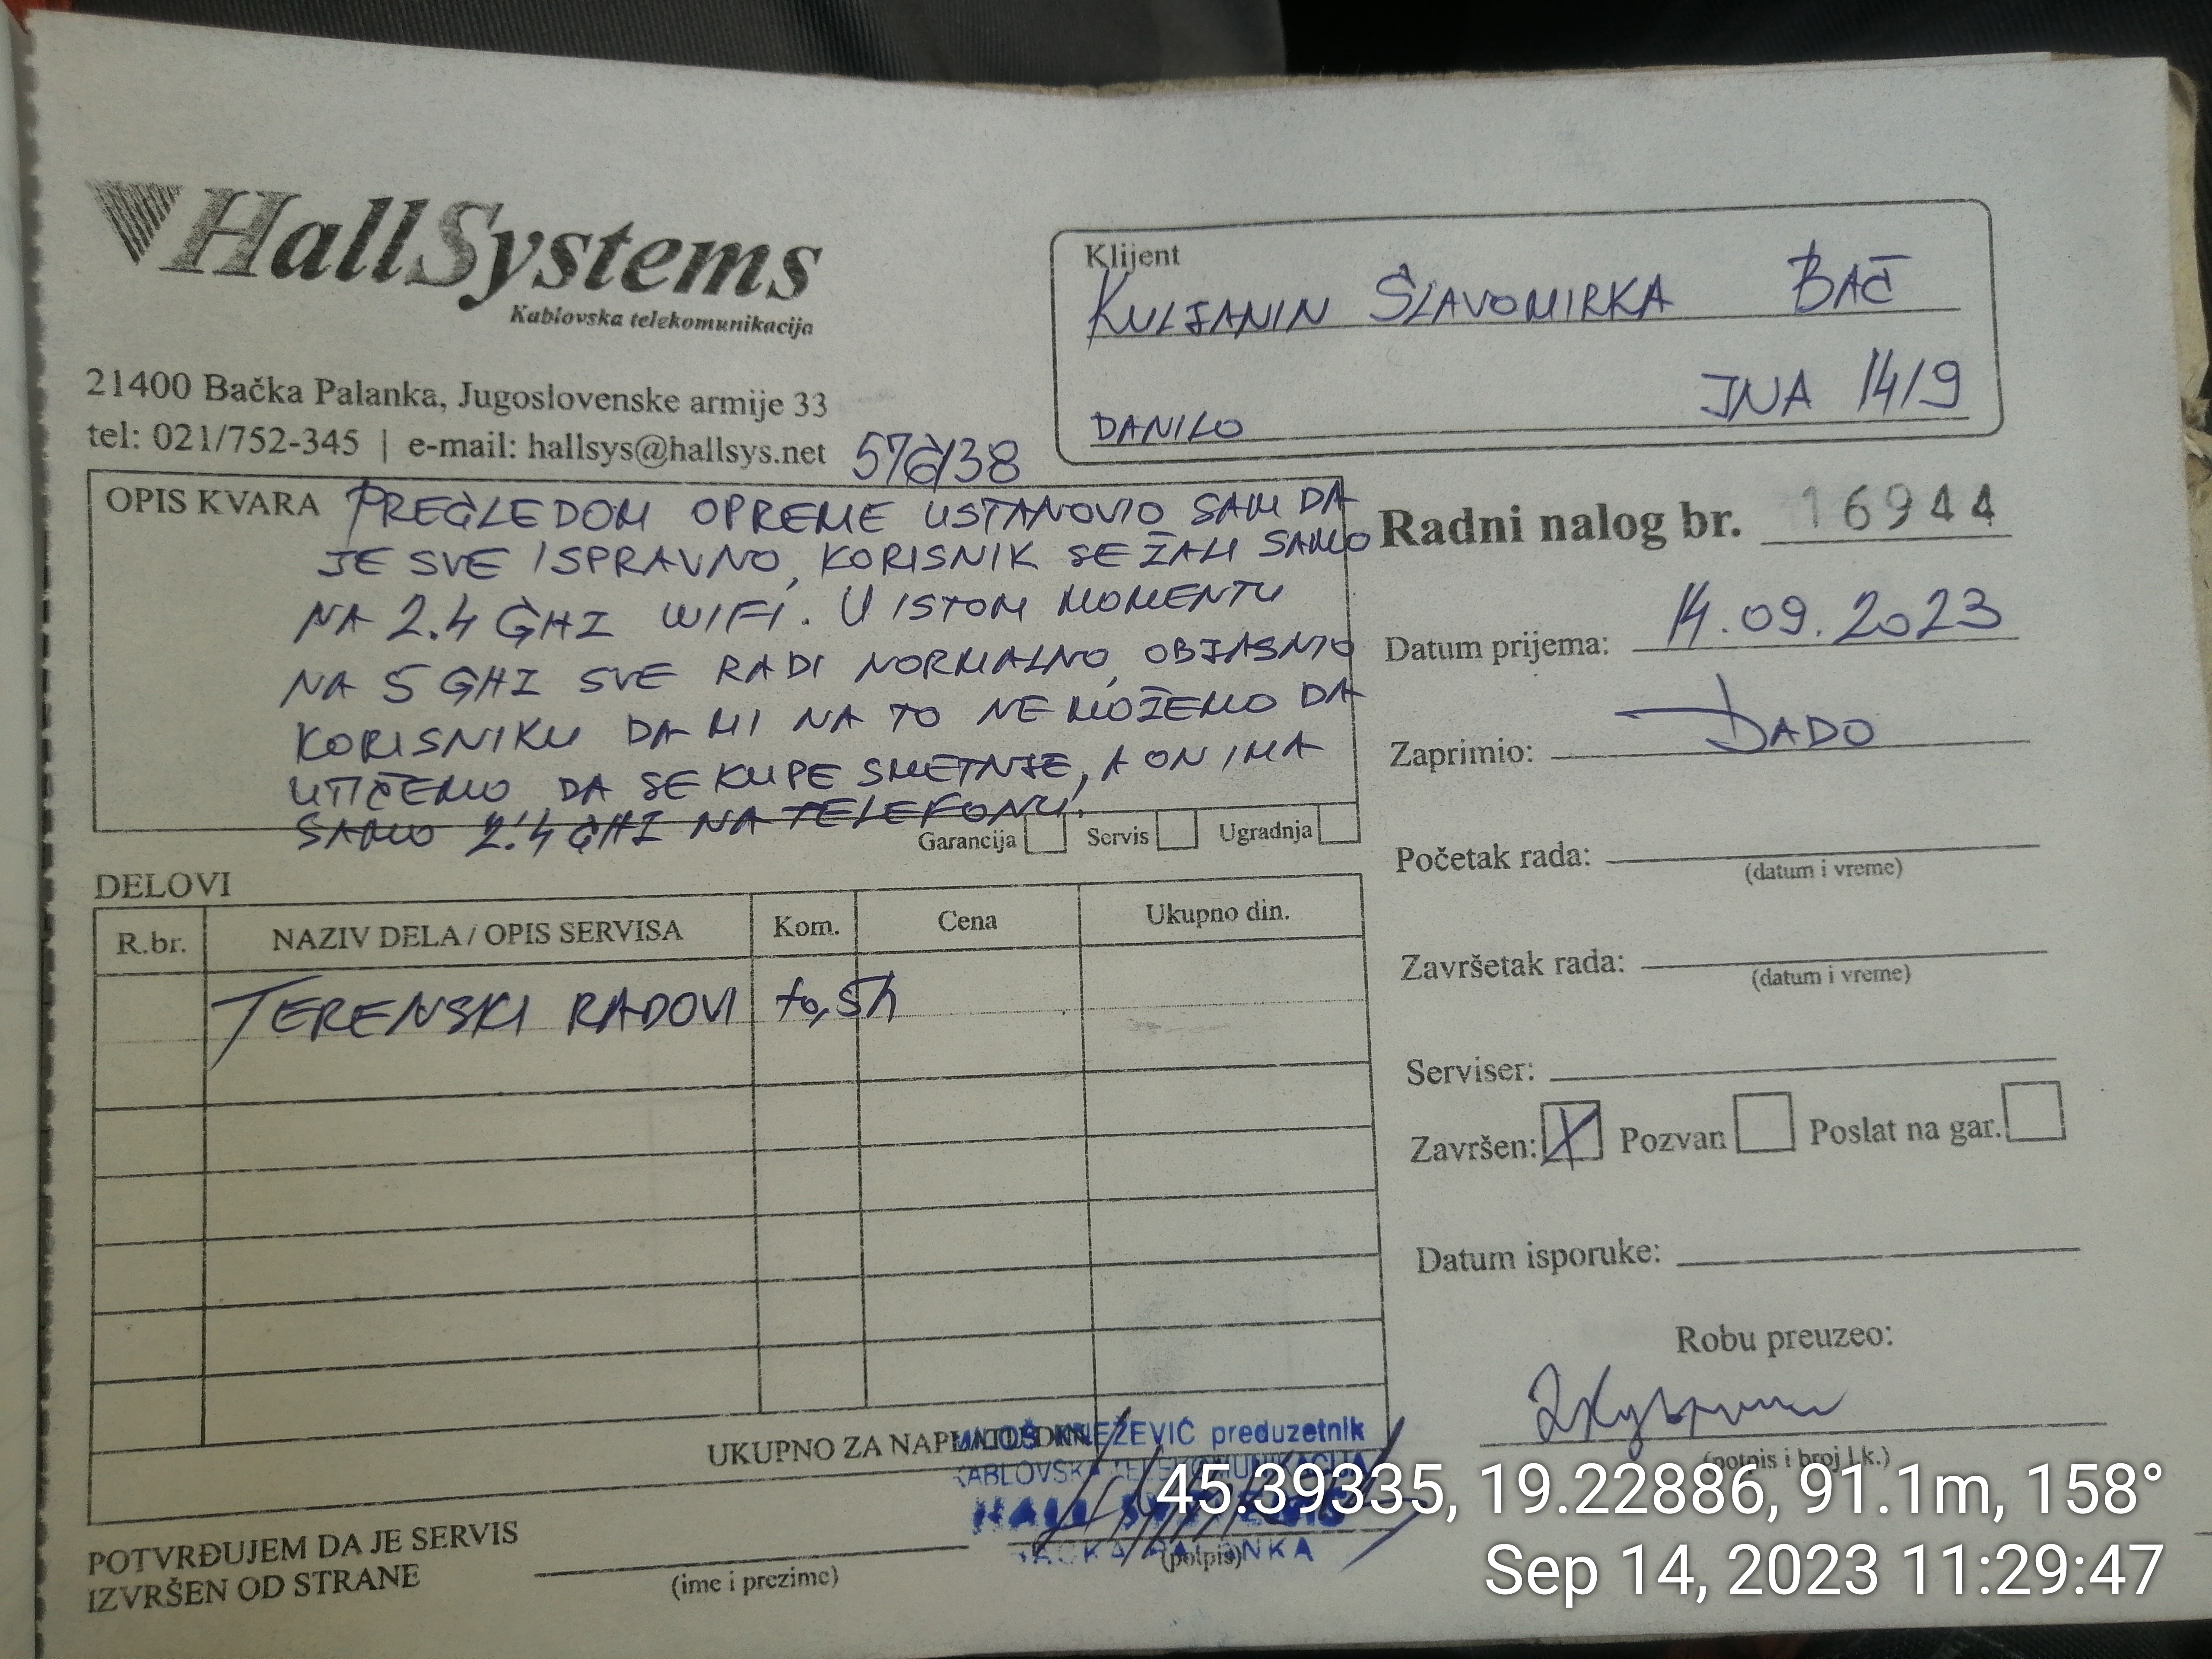 HallSystems
Kablovska telekomunikacija
21400 Bačka Palanka, Jugoslovenske armije 33
tel: 021/752-345 | e-mail: hallsys@hallsys.net
576/38
Klijent
KULJANIN SLAVOMIRKA BAČ
JNA 14/9
DANILO
OPIS KVARA PREGLEDOM OPREME USTANOVIO SAM DA
JE SVE ISPRAVNO, KORISNIK SE ŽALI SAMO
NA 2.4 GHZ WIFI. U ISTOM MOMENTU
NA 5 GHZ SVE RADI NORMALNO, OBJASNIO
KORISNIKU DA MI NA TO NE MOŽEMO DA
UTIČEMO DA SE KUPE SMETNJE, A ON IMA
SAMO 2.4 GHZ NA TELEFONU.
Garancija Servis Ugradnja
Radni nalog br. 16944
Datum prijema: 14.09.2023
Zaprimio: DADO
Početak rada:
(datum i vreme)
Završetak rada:
(datum i vreme)
Serviser:
Završen: X Pozvan Poslat na gar.
Datum isporuke:
Robu preuzeo:
(potpis i broj l.k.)
DELOVI
R.br. NAZIV DELA / OPIS SERVISA Kom. Cena Ukupno din.
TERENSKI RADOVI to,5h
UKUPNO ZA
KNEŽEVIĆ preduzetnik
POTVRĐUJEM DA JE SERVIS
IZVRŠEN OD STRANE
(ime i prezime)
(potpis)
45.39335, 19.22886, 91.1m, 158°
Sep 14, 2023 11:29:47